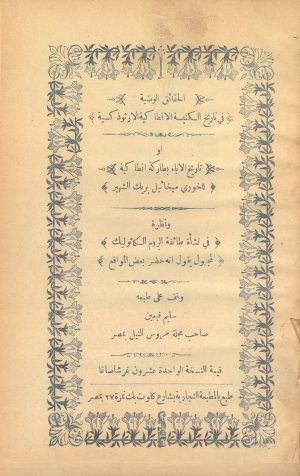 الحقائق الوضية
في تاريخ الكنيسة الانطاكية الارثوذكسية
او
تاريخ الاباء بطاركة انطاكية
للخوري ميخائيل بريك الشهير
ونظرة
في نشأة طائفة الروم الكاثوليك
لمجهول يقول انه حضر بعض المواقع
وقف على طبعه
سليم قبعين
صاحب مجلة عروس النيل بمصر
قيمة النسخة الواحدة عشرون غرشا صاغا
طبع بالمطبعة التجارية بشارع كلوت بك نمرة ٢٧ بمصر